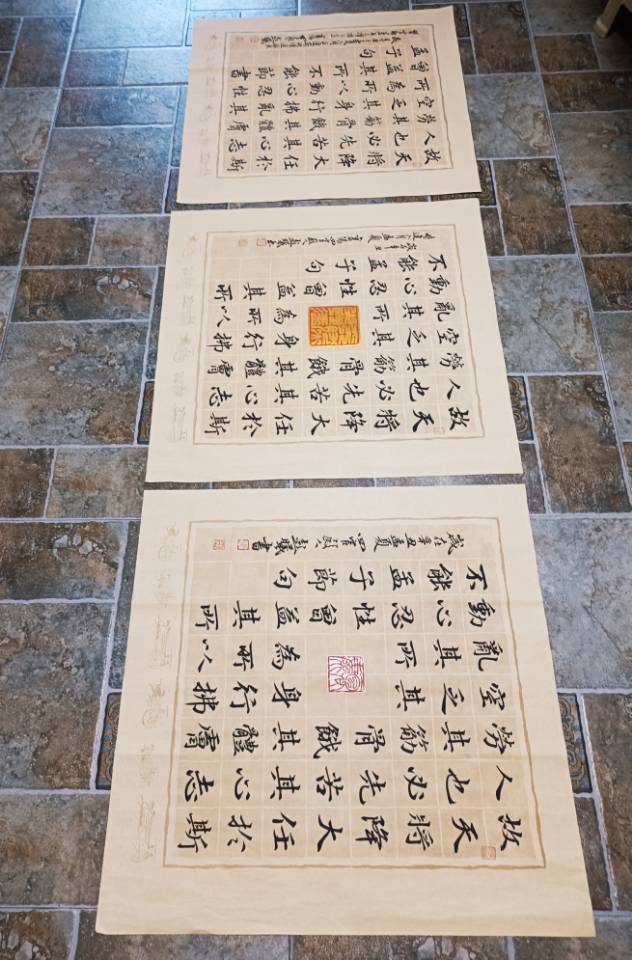 故天將降大任於斯
人也必先苦其心志
勞其筋骨餓其體膚
空乏其身行拂亂其
所為所以動心忍性
曾益其所不能節書
孟子句
故天將降大任於斯
人也必先苦其心志
勞其筋骨餓其體膚
空乏其身行拂
亂其所為所以
動心忍性曾益其所
不能孟子句
故天將降大任於斯
人也必先苦其心志
勞其筋骨餓其體膚
空乏其身行拂
亂其所為所以
動心忍性曾益其所
不能孟子節句
歲在辛丑孟夏